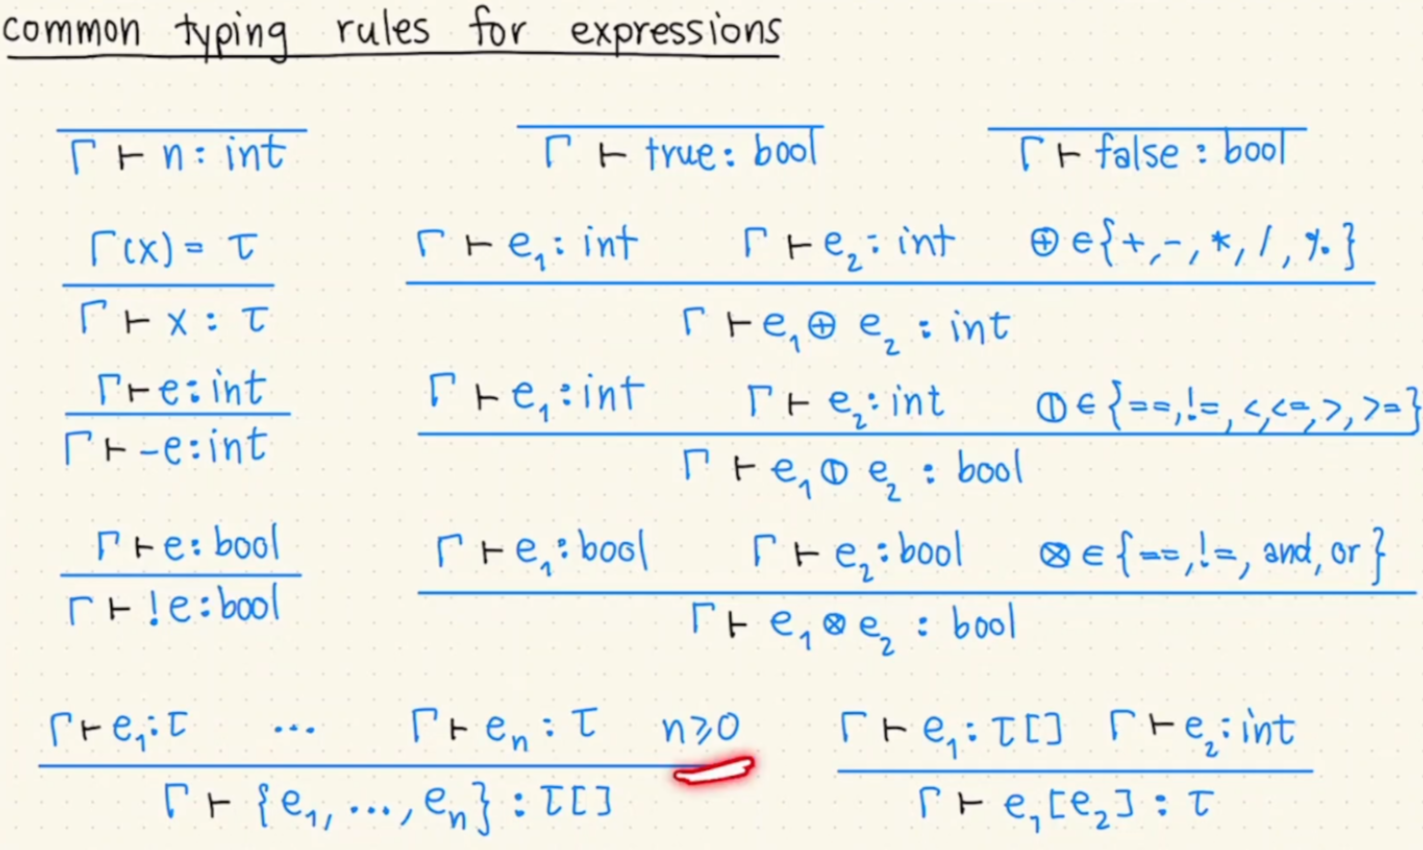 common typing rules for expressions
Γ ⊢ n : int    Γ ⊢ true : bool    Γ ⊢ false : bool
Γ(x) = τ    Γ ⊢ e₁ : int    Γ ⊢ e₂ : int    ⊕ ∈ {+, -, *, /, %}
Γ ⊢ x : τ    Γ ⊢ e₁ ⊕ e₂ : int
Γ ⊢ e : int    Γ ⊢ e₁ : int    Γ ⊢ e₂ : int    ⦶ ∈ {==, !=, <, <=, >, >=}
Γ ⊢ -e : int    Γ ⊢ e₁ ⦶ e₂ : bool
Γ ⊢ e : bool    Γ ⊢ e₁ : bool    Γ ⊢ e₂ : bool    ⊗ ∈ {==, !=, and, or}
Γ ⊢ !e : bool    Γ ⊢ e₁ ⊗ e₂ : bool
Γ ⊢ e₁ : τ    ...    Γ ⊢ eₙ : τ    n ⩾ 0    Γ ⊢ e₁ : τ[]    Γ ⊢ e₂ : int
Γ ⊢ {e₁, ..., eₙ} : τ[]    Γ ⊢ e₁[e₂] : τ